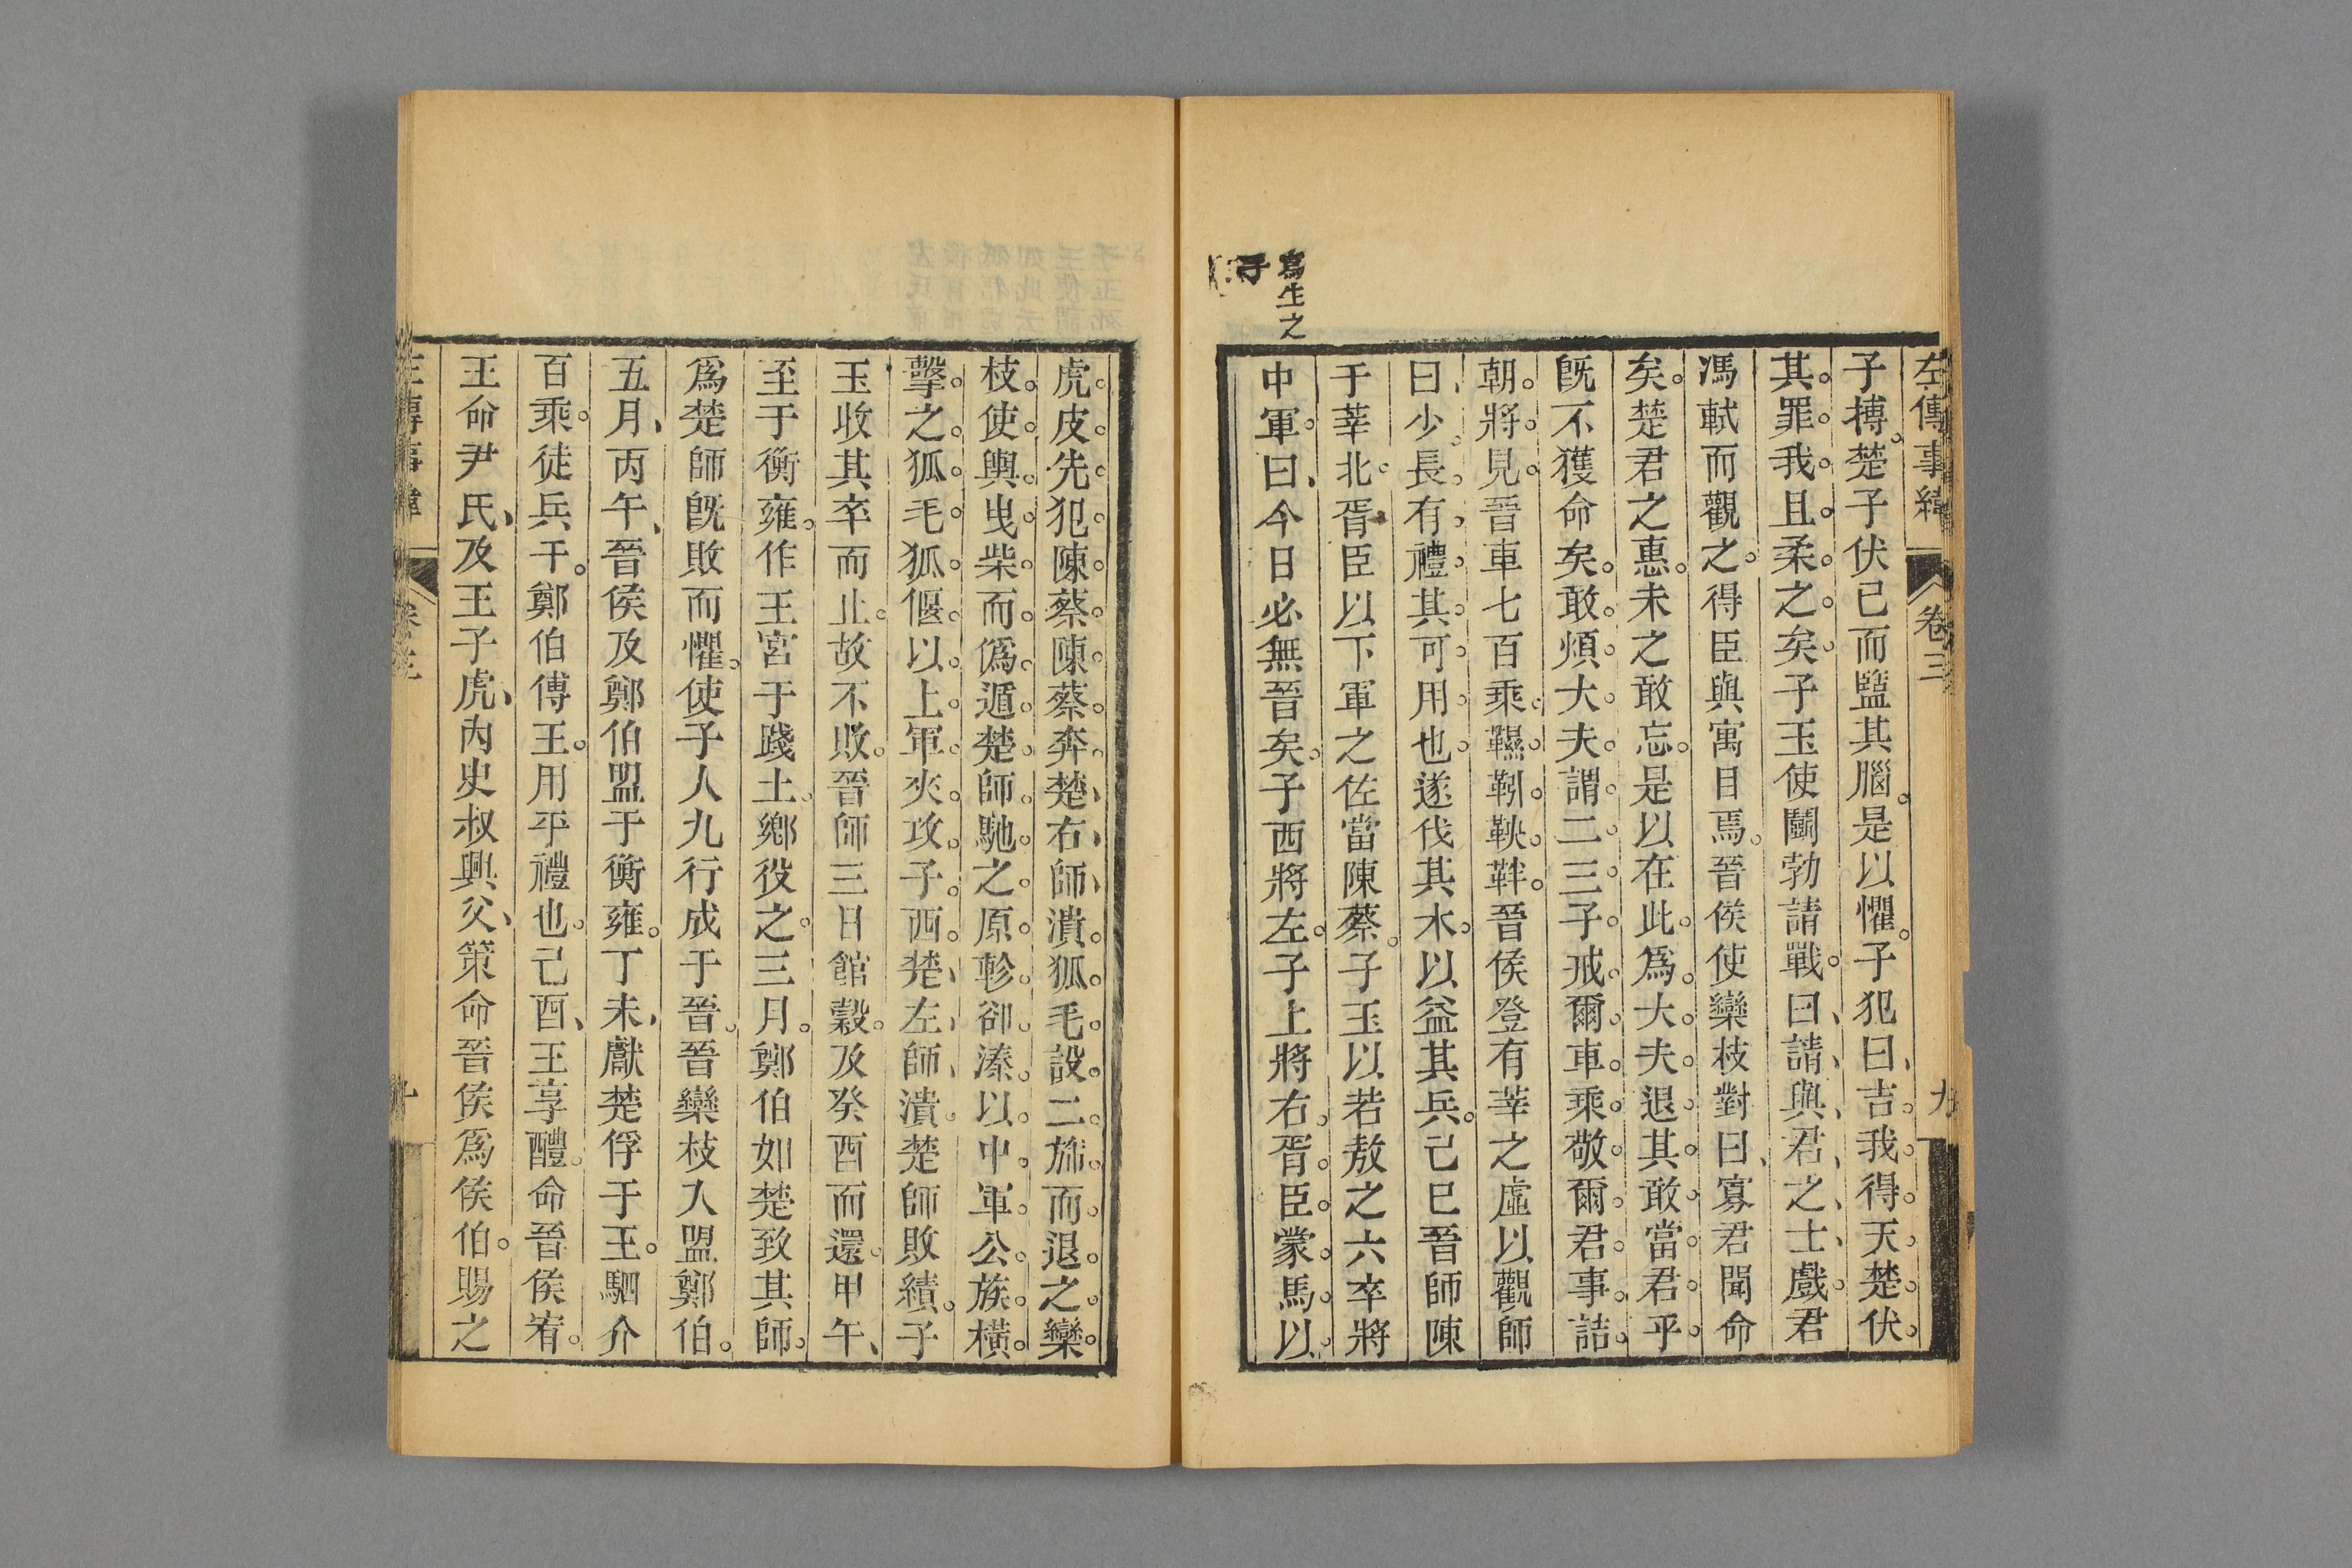 左傳事緯 卷三 九
子搏楚子伏己而盬其腦是以懼子犯曰吉我得天楚伏
其罪我且柔之矣子玉使鬭勃請戰曰請與君之士戲君
馮軾而觀之得臣與寓目焉晉侯使欒枝對曰寡君聞命
矣楚君之惠未之敢忘是以在此爲大夫退其敢當君乎
旣不獲命矣敢煩大夫謂二三子戒爾車乘敬爾君事詰
朝將見晉車七百乘韅靷鞅靽晉侯登有莘之虛以觀師
曰少長有禮其可用也遂伐其木以益其兵己巳晉師陳
于莘北胥臣以下軍之佐當陳蔡子玉以若敖之六卒將
中軍曰今日必無晉矣子西將左子上將右胥臣蒙馬以
寫生之
子
虎皮先犯陳蔡陳蔡奔楚右師潰狐毛設二旆而退之欒
枝使輿曳柴而僞遁楚師馳之原軫郤溱以中軍公族橫
擊之狐毛狐偃以上軍夾攻子西楚左師潰楚師敗績子
玉收其卒而止故不敗晉師三日館穀及癸酉而還甲午
至于衡雍作王宮于踐土鄉役之三月鄭伯如楚致其師
爲楚師旣敗而懼使子人九行成于晉晉欒枝入盟鄭伯
五月丙午晉侯及鄭伯盟于衡雍丁未獻楚俘于王駟介
百乘徒兵千鄭伯傅王用平禮也己酉王享醴命晉侯宥
王命尹氏及王子虎內史叔興父策命晉侯爲侯伯賜之
左傳事緯 卷三 十